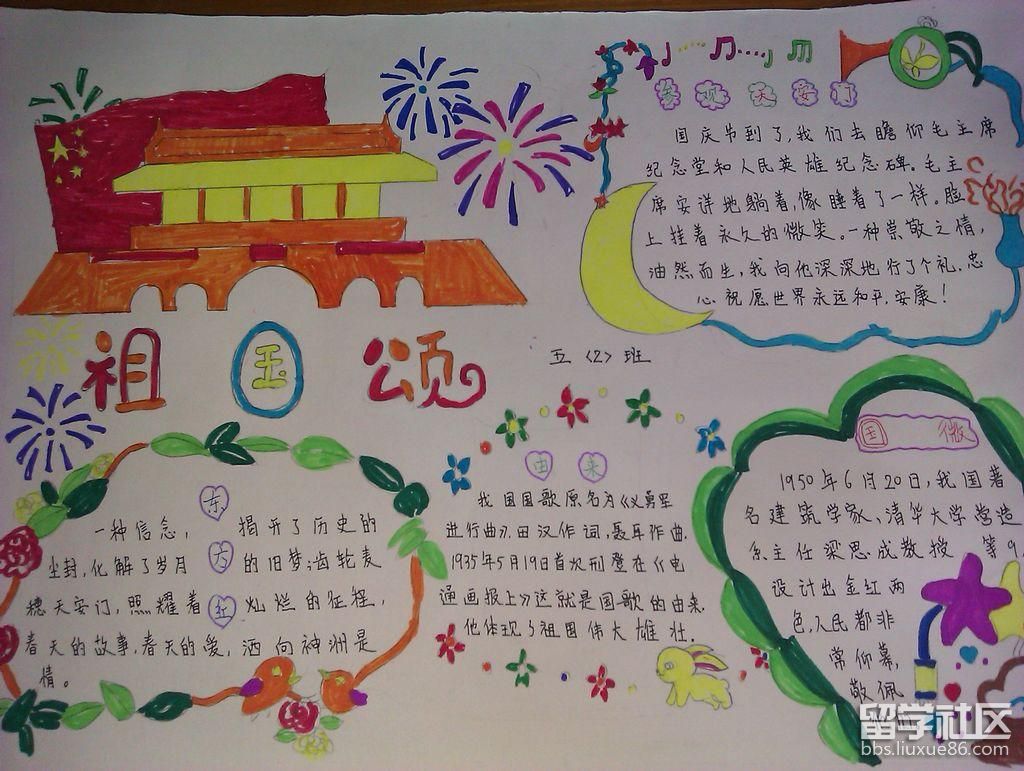 参观天安门
国庆节到了,我们去瞻仰毛主席
纪念堂和人民英雄纪念碑。毛主
席安详地躺着,像睡着了一样。脸
上挂着永久的微笑。一种崇敬之情,
油然而生,我向他深深地行了个礼.忠
心祝愿世界永远和平,安康!
祖国颂
五〈2〉班
东方红
一种信念,揭开了历史的
尘封,化解了岁月的旧梦;齿轮麦
穗天安门,照耀着灿烂的征程,
春天的故事,春天的爱,洒向神洲是
情。
由来
我国国歌原名为《义勇军
进行曲》.田汉作词,聂耳作曲.
1935年5月19日首次刑登在《电
通画报上》这就是国歌的由来.
他体现了祖国伟大雄壮.
国 徽
1950年6月20日,我国著
名建筑学家、清华大学营造
系主任梁思成教授等9
设计出金红两
色,人民都非
常仰幕,
敬佩
留学社区
bbs.liuxue86.com